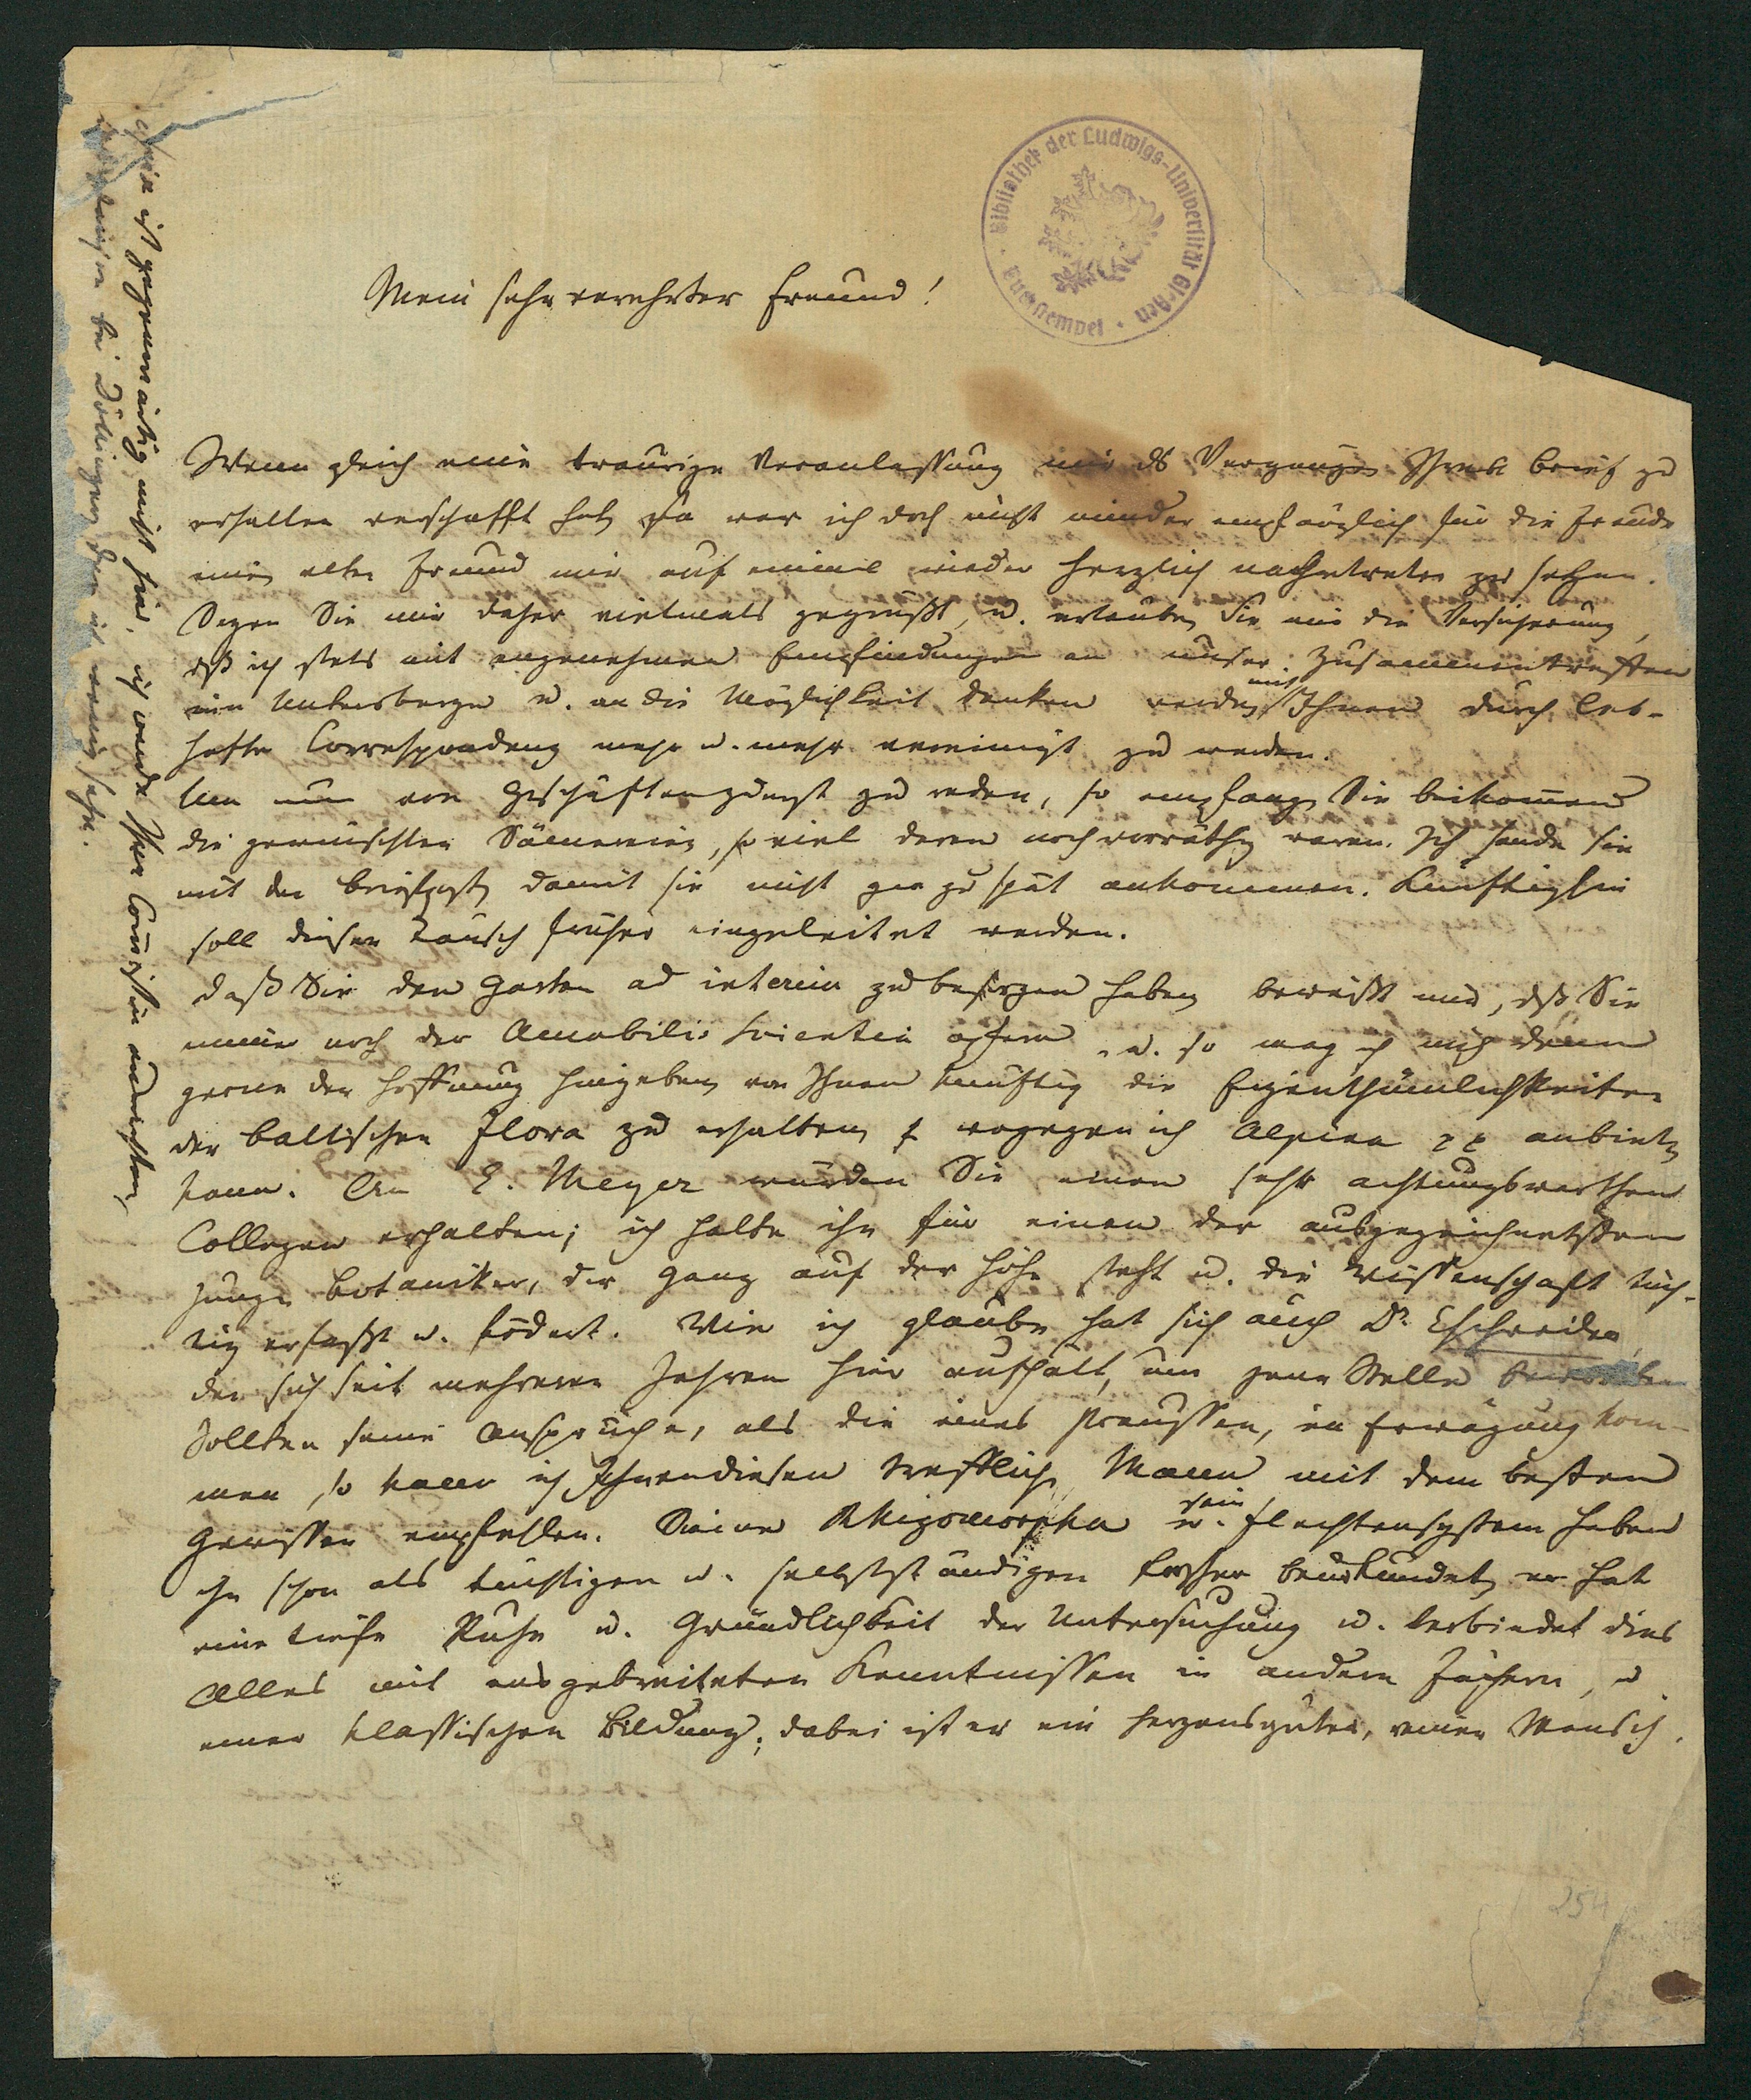 Bibliothek der Ludwigs-Universität Gießen
Buchstempel
Mein sehr verehrter Freund!
Wenn gleich eine traurige Veranlassung mir ds Vergnügen Ihren Brief zu
erhalten verschafft hat, so war ich doch nicht minder empfänglich für die Freude
einen alten Freund mir auf einmal wieder herzlich nachtreten zu sehen.
Seyen Sie mir daher vielmals gegrüßt, u. erlauben Sie mir die Versicherung,
dß ich stets mit angenehmen Empfindungen an unser Zusammentreffen
im Untersberge u. an die Möglichkeit denken werde, mit Ihnen durch leb-
hafte Correspondenz mehr u. mehr vereinigt zu werden.
Um nun von Geschäften zuerst zu reden, so empfangen Sie beikommend
die gewünschten Sämereien, so viel deren noch vorräthig waren. Ich sende sie
mit der Briefpost, damit sie nicht gar zu spät ankommen. Künftighin
soll dieser Tausch früher eingeleitet werden.
Daß Sie den Garten ad interim zu besorgen haben, beweißt mir, dß Sie
immer noch der Amabilis Scientia opfern, u. so mag ich mich denn
gerne der Hoffnung hingeben, von Ihnen künftig die Eigenthümlichkeiten
der baltischen Flora zu erhalten, wogegen ich Alpina anbieten
kann. An E. Meyer würden Sie einen sehr achtungswerthen
Collegen erhalten; ich halte ihn für einen der ausgezeichnetsten
jungen Botaniker, der ganz auf der Höhe steht u. die Wissenschaft tüch-
tig erfaßt u. födert. Wie ich glaube hat sich auch Dr. Eschweiler,
der sich seit mehreren Jahren hier aufhält, um jene Stelle beworben
Sollten seine Ansprüche, als die eines Preussen, in Erwägung kom-
men, so kann ich Ihnen diesen trefflichen Mann mit dem besten
Gewissen empfehlen. Seine Rhizomorpha u. sein Flechtensystem haben
ihn schon als tüchtigen u. selbstständigen Forscher beurkundet, er hat
eine tiefe Ruhe u. Gründlichkeit der Untersuchung u. verbindet dies
Alles mit ausgebreiteten Kenntnissen in andern Fächern, u.
einer klassischen Bildung; dabei ist er ein herzensguter, reiner Mensch.
ist gegenwärtig nicht hier, ich werde Ihre Com̅ission ausrichten,
bei Döllinger, den ich wenig sehe.
254